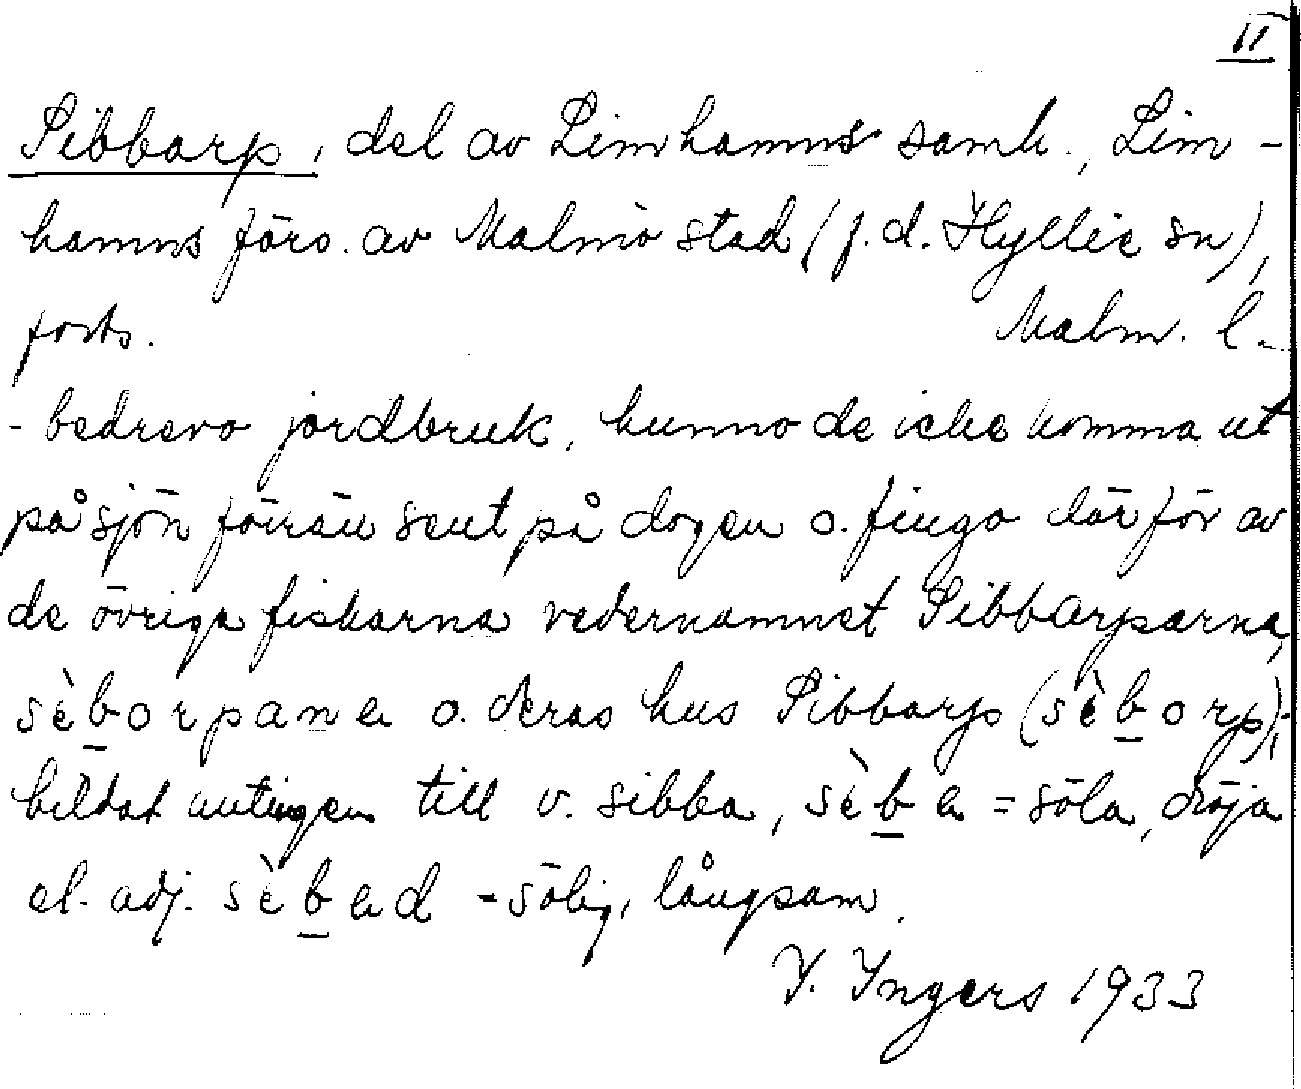 II
Sibbarp, del av Limhamns samh., Lim-
hamns förs. av Malmö stad (f.d. Hyllie sn),
forts. Malm. l.
- bedrevo jordbruk, kunno de icke komma ut
på sjön förrän sent på dagen o. fingo därför av
de övriga fiskarna vedernamnet Sibbarparna,
sèborpana o. deras hus Sibbarp (sèborp);
bildat antingen till v. sibba, sèba = söla, dröja
el. adj. sèbad = sölig, långsam.
I. Ingers 1933